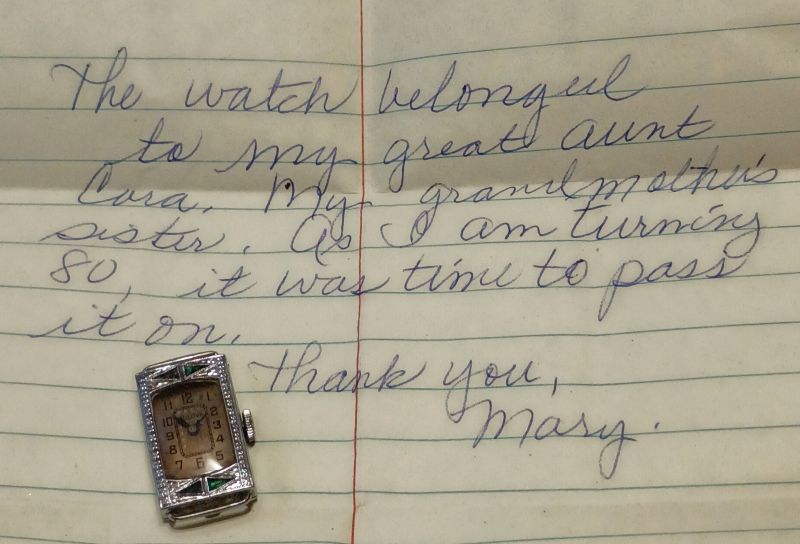 The watch belonged
to my great aunt
Cora. My grandmother's
sister. As I am turning
80, it was time to pass
it on.
Thank you,
Mary.
11 12 1
10 2
9 3
8 4
7 6 5